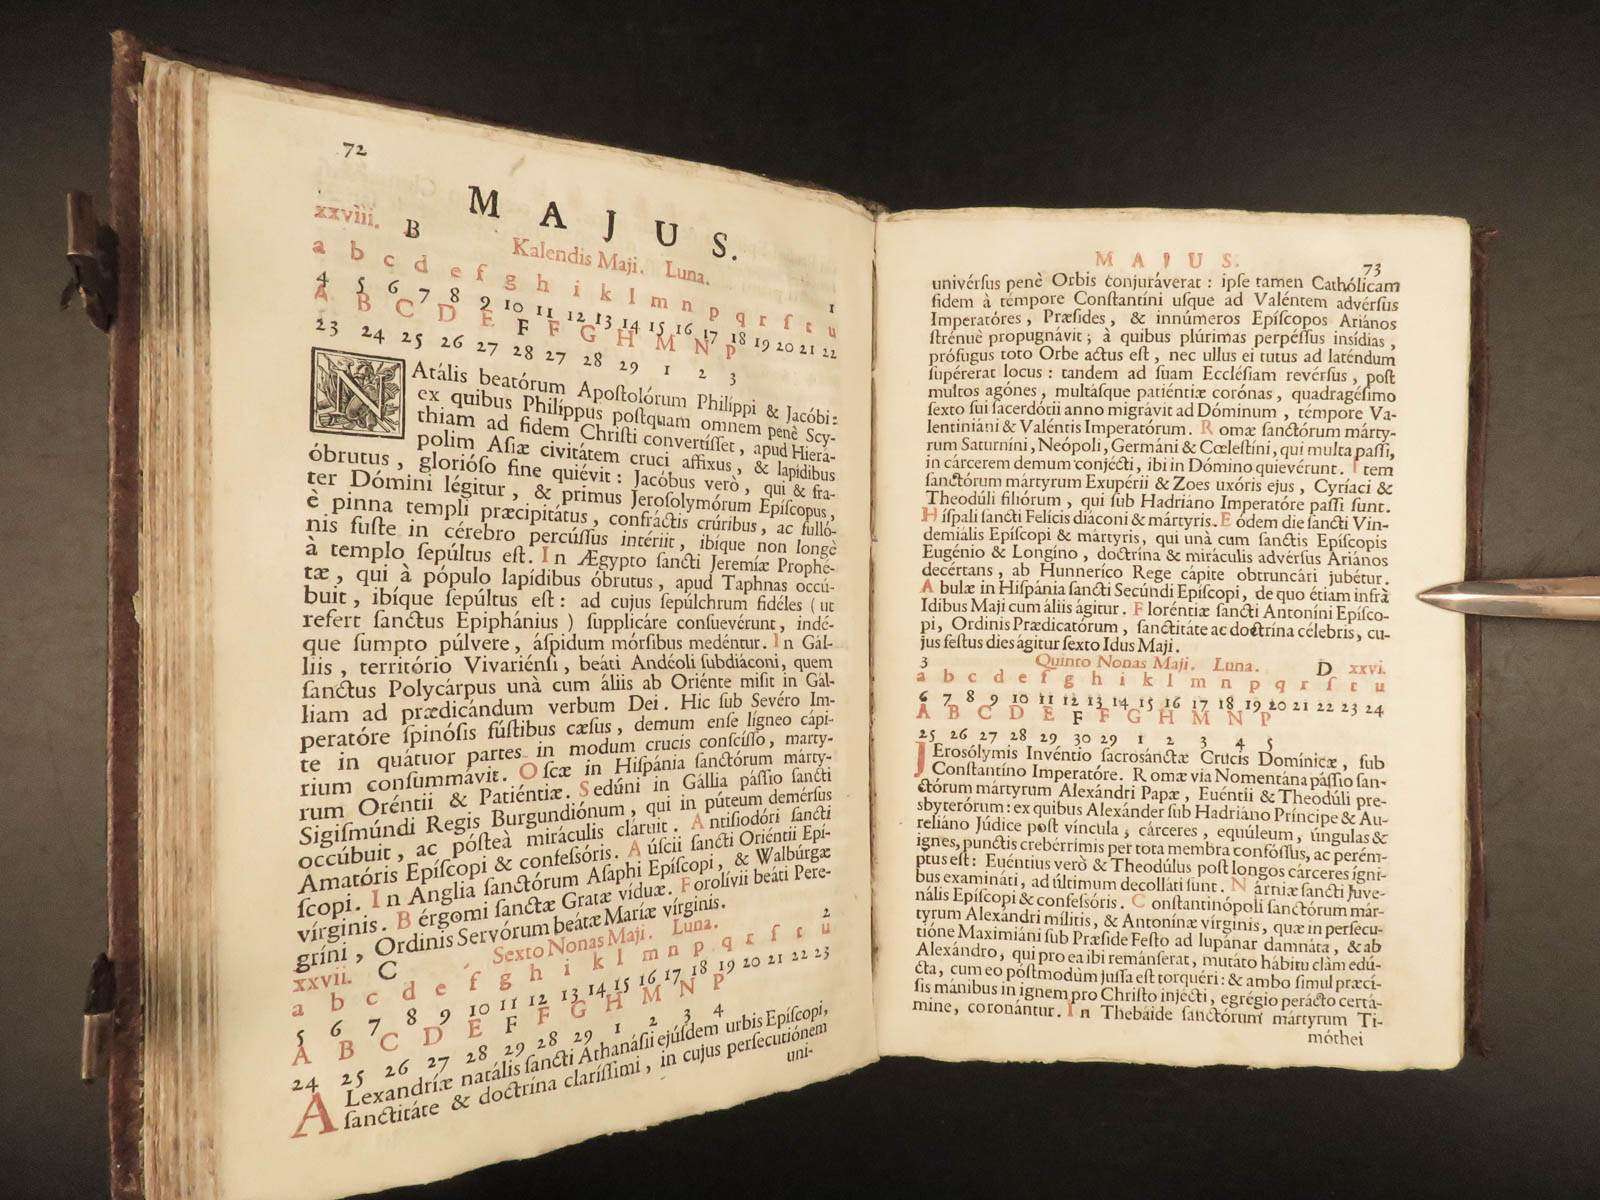 72
MAJUS.
xxviii. B Kalendis Maji. Luna. 1
a b c d e f g h i k l m n p q r ſ t u
4 5 6 7 8 9 10 11 12 13 14 15 16 17 18 19 20 21 22
A B C D E F F G H M N P
23 24 25 26 27 28 27 28 29 1 2 3
NAtális beatórum Apoſtolórum Philíppi & Jacóbi:
ex quibus Philíppus poſtquam omnem penè Scy-
thiam ad fidem Chriſti convertíſſet, apud Hierá-
polim Aſiæ civitátem cruci affixus, & lapídibus
óbrutus, glorióſo fine quiévit: Jacóbus verò, qui & fra-
ter Dómini légitur, & primus Jeroſolymórum Epíſcopus,
è pinna templi præcipitátus, confráctis crúribus, ac fulló-
nis fuſte in cérebro percúſſus intériit, ibíque non longè
à templo ſepúltus eſt. In Ægypto ſancti Jeremíæ Prophé-
tæ, qui à pópulo lapídibus óbrutus, apud Taphnas occú-
buit, ibíque ſepúltus eſt: ad cujus ſepúlchrum fidéles (ut
refert ſanctus Epiphánius) ſupplicáre conſuevérunt, indé-
que ſumpto púlvere, áſpidum mórſibus medéntur. In Gál-
liis, território Vivariénſi, beáti Andéoli ſubdiáconi, quem
ſanctus Polycárpus unà cum áliis ab Oriénte miſit in Gál-
liam ad prædicándum verbum Dei. Hic ſub Sevéro Im-
peratóre ſpinóſis fúſtibus cæſus, demum enſe lígneo cápi-
te in quátuor partes in modum crucis conſcíſſo, marty-
rium conſummávit. Oſcæ in Hiſpánia ſanctórum márty-
rum Oréntii & Patiéntiæ. Sedúni in Gállia páſſio ſancti
Sigiſmúndi Regis Burgundiónum, qui in púteum demérſus
occúbuit, ac póſteà miráculis cláruit. Antiſiodóri ſancti
Amatóris Epíſcopi & confeſſóris. Aúſcii ſancti Oriéntii Epí-
ſcopi. In Anglia ſanctórum Aſaphi Epíſcopi, & Walbúrgæ
vírginis. Bérgomi ſanctæ Gratæ víduæ. Forolívii beáti Pere-
gríni, Ordinis Servórum beátæ Maríæ vírginis.
xxvii. C Sexto Nonas Maji. Luna. 2
a b c d e f g h i k l m n p q r ſ t u
5 6 7 8 9 10 11 12 13 14 15 16 17 18 19 20 21 22 23
A B C D E F F G H M N P
24 25 26 27 28 29 28 29 1 2 3 4
ALexandríæ natális ſancti Athanáſii ejúſdem urbis Epíſcopi,
ſanctitáte & doctrína claríſſimi, in cujus perſecutiónem
uni-
MAJUS. 73
univérſus penè Orbis conjuráverat: ipſe tamen Cathólicam
fidem à témpore Conſtantíni uſque ad Valéntem advérſus
Imperatóres, Præſides, & innúmeros Epíſcopos Ariános
ſtrénuè propugnávit; à quibus plúrimas perpéſſus inſídias,
prófugus toto Orbe actus eſt, nec ullus ei tutus ad laténdum
ſupérerat locus: tandem ad ſuam Eccléſiam revérſus, poſt
multos agónes, multáſque patiéntiæ corónas, quadragéſimo
ſexto ſui ſacerdótii anno migrávit ad Dóminum, témpore Va-
lentiniáni & Valéntis Imperatórum. Romæ ſanctórum márty-
rum Saturníni, Neópoli, Germáni & Cœleſtíni, qui multa paſſi,
in cárcerem demum conjécti, ibi in Dómino quievérunt. Item
ſanctórum mártyrum Exupérii & Zoes uxóris ejus, Cyríaci &
Theodúli filiórum, qui ſub Hadriáno Imperatóre paſſi ſunt.
Híſpali ſancti Felícis diáconi & mártyris. Eódem die ſancti Vin-
demiális Epíſcopi & mártyris, qui unà cum ſanctis Epíſcopis
Eugénio & Longíno, doctrína & miráculis advérſus Ariános
decértans, ab Hunneríco Rege cápite obtruncári jubétur.
Abulæ in Hiſpánia ſancti Secúndi Epíſcopi, de quo étiam infrà
Idibus Maji cum áliis ágitur. Floréntiæ ſancti Antoníni Epíſco-
pi, Ordinis Prædicatórum, ſanctitáte ac doctrína célebris, cu-
jus feſtus dies ágitur ſexto Idus Maji.
3 Quinto Nonas Maji. Luna. D xxvi.
a b c d e f g h i k l m n p q r ſ t u
6 7 8 9 10 11 12 13 14 15 16 17 18 19 20 21 22 23 24
A B C D E F F G H M N P
25 26 27 28 29 30 29 1 2 3 4 5
JEroſólymis Invéntio ſacroſánctæ Crucis Domínicæ, ſub
Conſtantíno Imperatóre. Romæ via Nomentána páſſio ſan-
ctórum mártyrum Alexándri Papæ, Evéntii & Theodúli pre-
sbyterórum: ex quibus Alexánder ſub Hadriáno Príncipe & Au-
reliáno Júdice poſt víncula, cárceres, equúleum, úngulas &
ignes, punctis crebérrimis per tota membra confóſſus, ac perém-
ptus eſt: Euéntius verò & Theodúlus poſt longos cárceres ígni-
bus examináti, ad últimum decolláti ſunt. Nárniæ ſancti Juve-
nális Epíſcopi & confeſſóris. Conſtantinópoli ſanctórum már-
tyrum Alexándri mílitis, & Antonínæ vírginis, quæ in perſecu-
tióne Maximiáni ſub Præſide Feſto ad lupánar damnáta, & ab
Alexándro, qui pro ea ibi remánſerat, mutáto hábitu clàm edú-
cta, cum eo póſtmodùm juſſa eſt torquéri: & ambo ſimul præcí-
ſis mánibus in ignem pro Chriſto injécti, egrégio perácto certá-
mine, coronántur. In Thebáide ſanctórum mártyrum Ti-
móthei